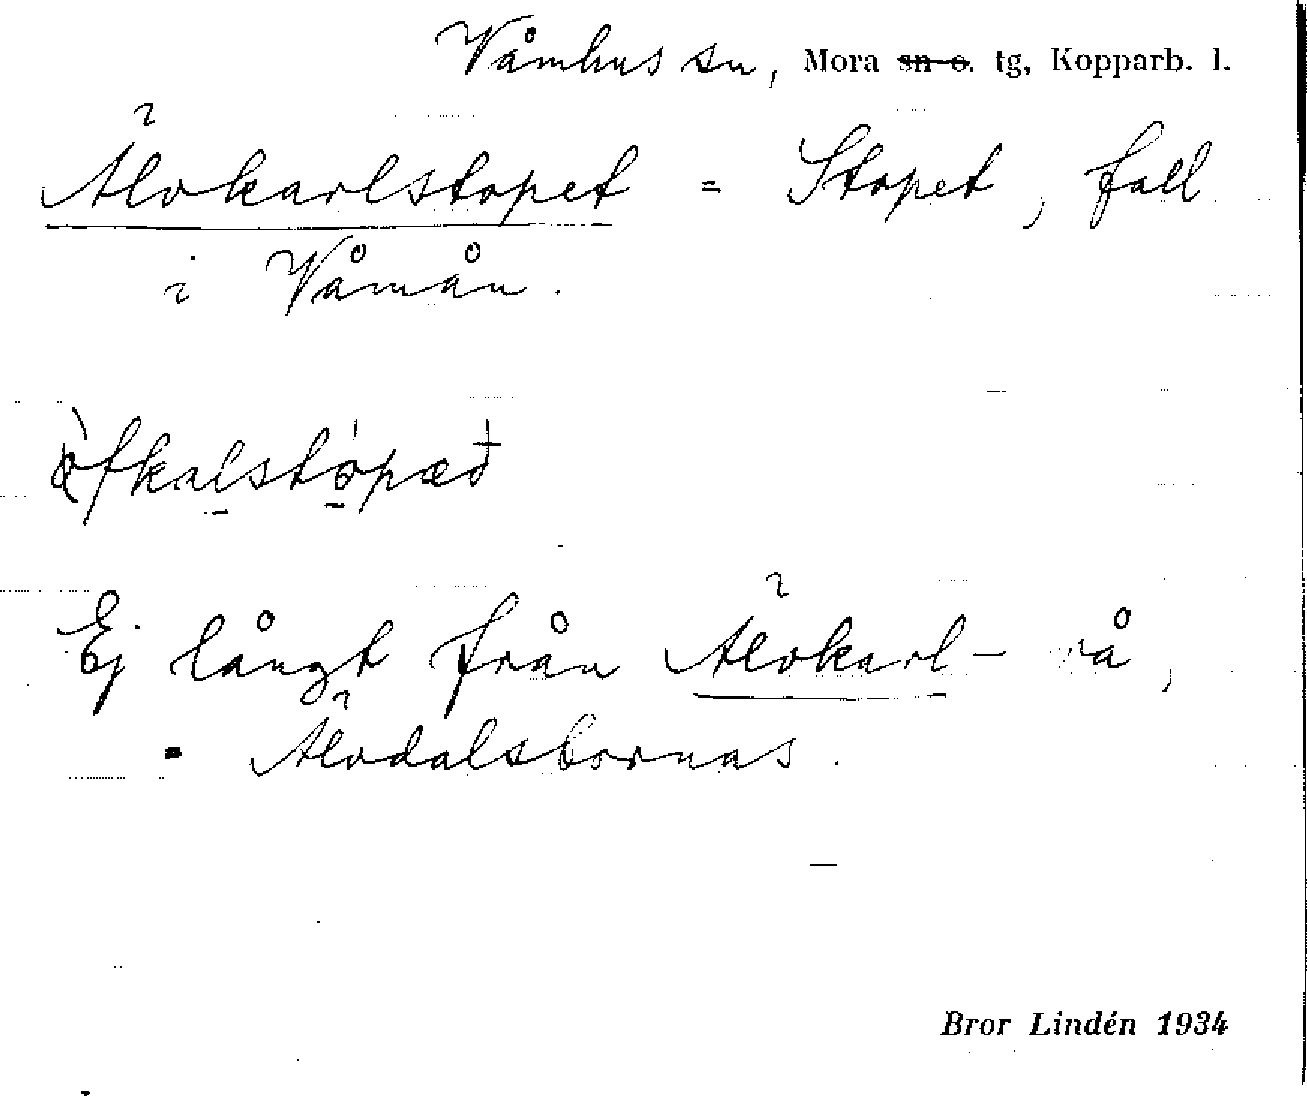 Våmhus sn, Mora ~~sn o.~~ tg, Kopparb. l.
Älvkarlstopet = Stopet, fall
i Våmån.
Ej långt från Älvkarl- rå,
= Älvdalsbornas.
Bror Lindén 1934